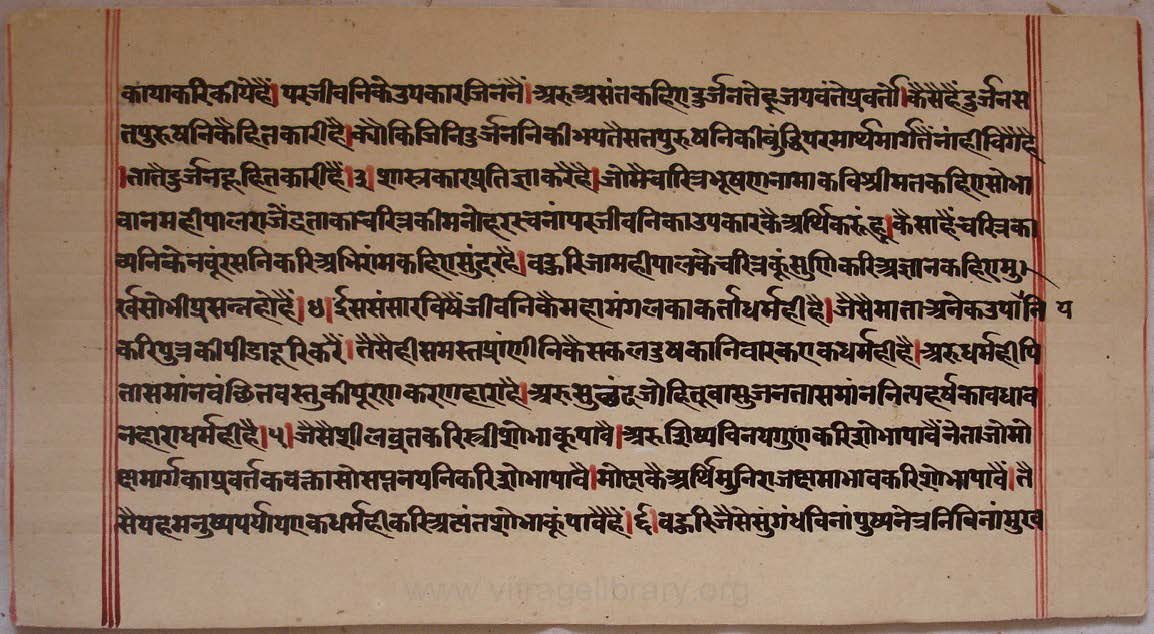 कायाकरिकीयेहैं। परजीवनिकेउपकारजिननैं। अरुअसंतकहिएदुर्जनतेहूजयवंतेप्रवर्तो। कैसैहैंदुर्जनस
तपुरुषनिकैहितकारीहै। क्योकिजिनिदुर्जननिकीभयतैसतपुरुषनिकीबुद्धिपरमार्थमार्गतैंनांहीचिगैहै
। तातैदुर्जनहूहितकारीहैं। ३। शास्त्रकारप्रतिज्ञाकरैहै। जोमैचारित्रभूषणनामाकविश्रीमतकहिएसोभा
वानमहीपालराजैंद्रताकाचरित्रकीमनोहररचनांपरजीवनिकाउपकारकैअर्थिकरूंहू। कैसाहैंचरित्रका
अनिकेनवूंरसनिकरिअभिरांमकहिएसुंदरहै। बहुरिजामहीपालकेचरित्रकूंसुणिकरिअज्ञानकहिएमु
र्खसोभीप्रसन्नहोहैं। ४। ईससंसारविषैंजीवनिकैमहामंगलकाकर्ताधर्महीहै। जैसैमाताअनेकउपांनि य
करिपुत्रकीपीडाहूरिकरैं। तैसैहीसमस्तप्रांणीनिकैसकलदुषकानिवारकएकधर्महीहै। अरुधर्महीपि
तासमांनवंछितवस्तुकीपूरणकरणहाराहै। अरुसुह्रदजोहितूवासुजनतासमांननित्यहर्षकावधाव
नहाराधर्महीहै। ५। जैसैशीलव्रतकरिस्त्रीशोभाकूपावै। अरुशिष्यविनयगुणकरिशोभापावैंनेताजोमो
क्षमार्गकाप्रवर्तकवक्तासोसप्तनयनिकरिशोभापावै। मोक्षकैअर्थिमुनिराजक्षमाभावकरिशोभापावैं। तै
सैयहमनुष्यपर्यायएकधर्महीकरिअत्यंतशोभाकूंपावैहैं। ६। बहुरिजैसेसुंगंधविनांपुष्पनेत्रनिविनांमुख
www.vitragelibrary.org